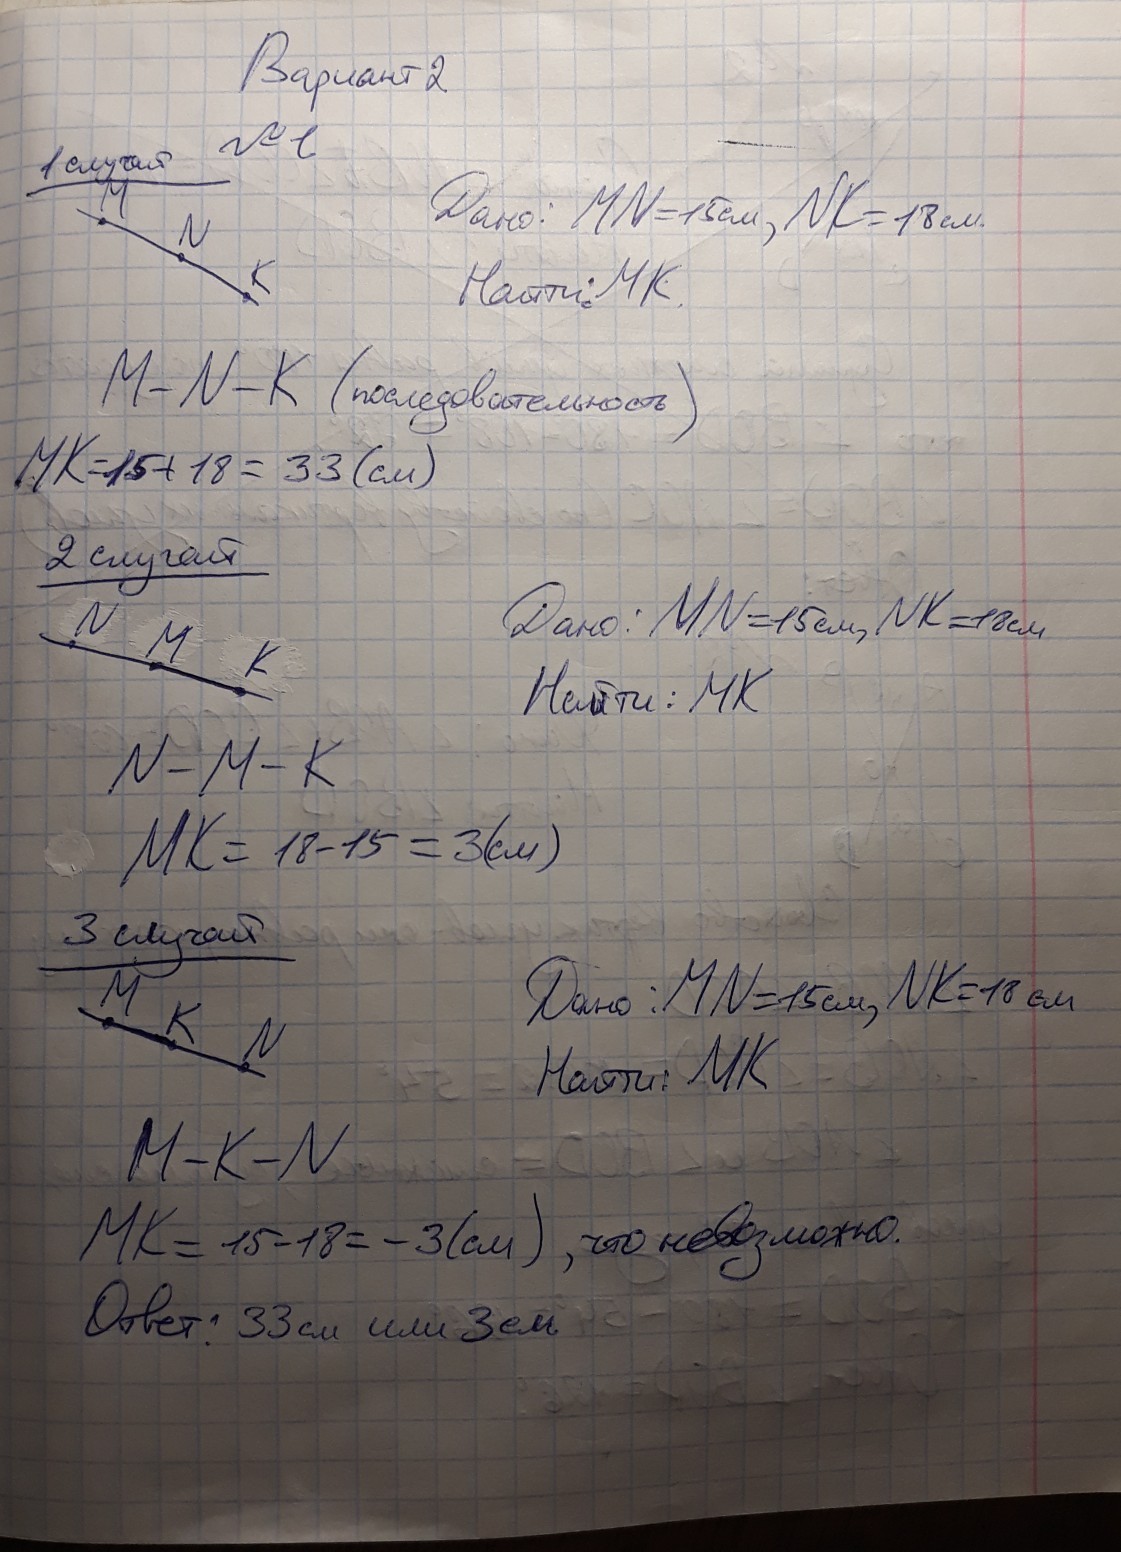 Вариант 2
№1
1 случай
M
N
K
Дано: MN=15см, NK=18см.
Найти: MK.
M-N-K (последовательность)
MK=15+18=33(см)
2 случай
N
M
K
Дано: MN=15см, NK=18см
Найти: MK
N-M-K
MK=18-15=3(см)
3 случай
M
K
N
Дано: MN=15см, NK=18см
Найти: MK
M-K-N
MK=15-18=-3(см), что невозможно.
Ответ: 33см или 3см